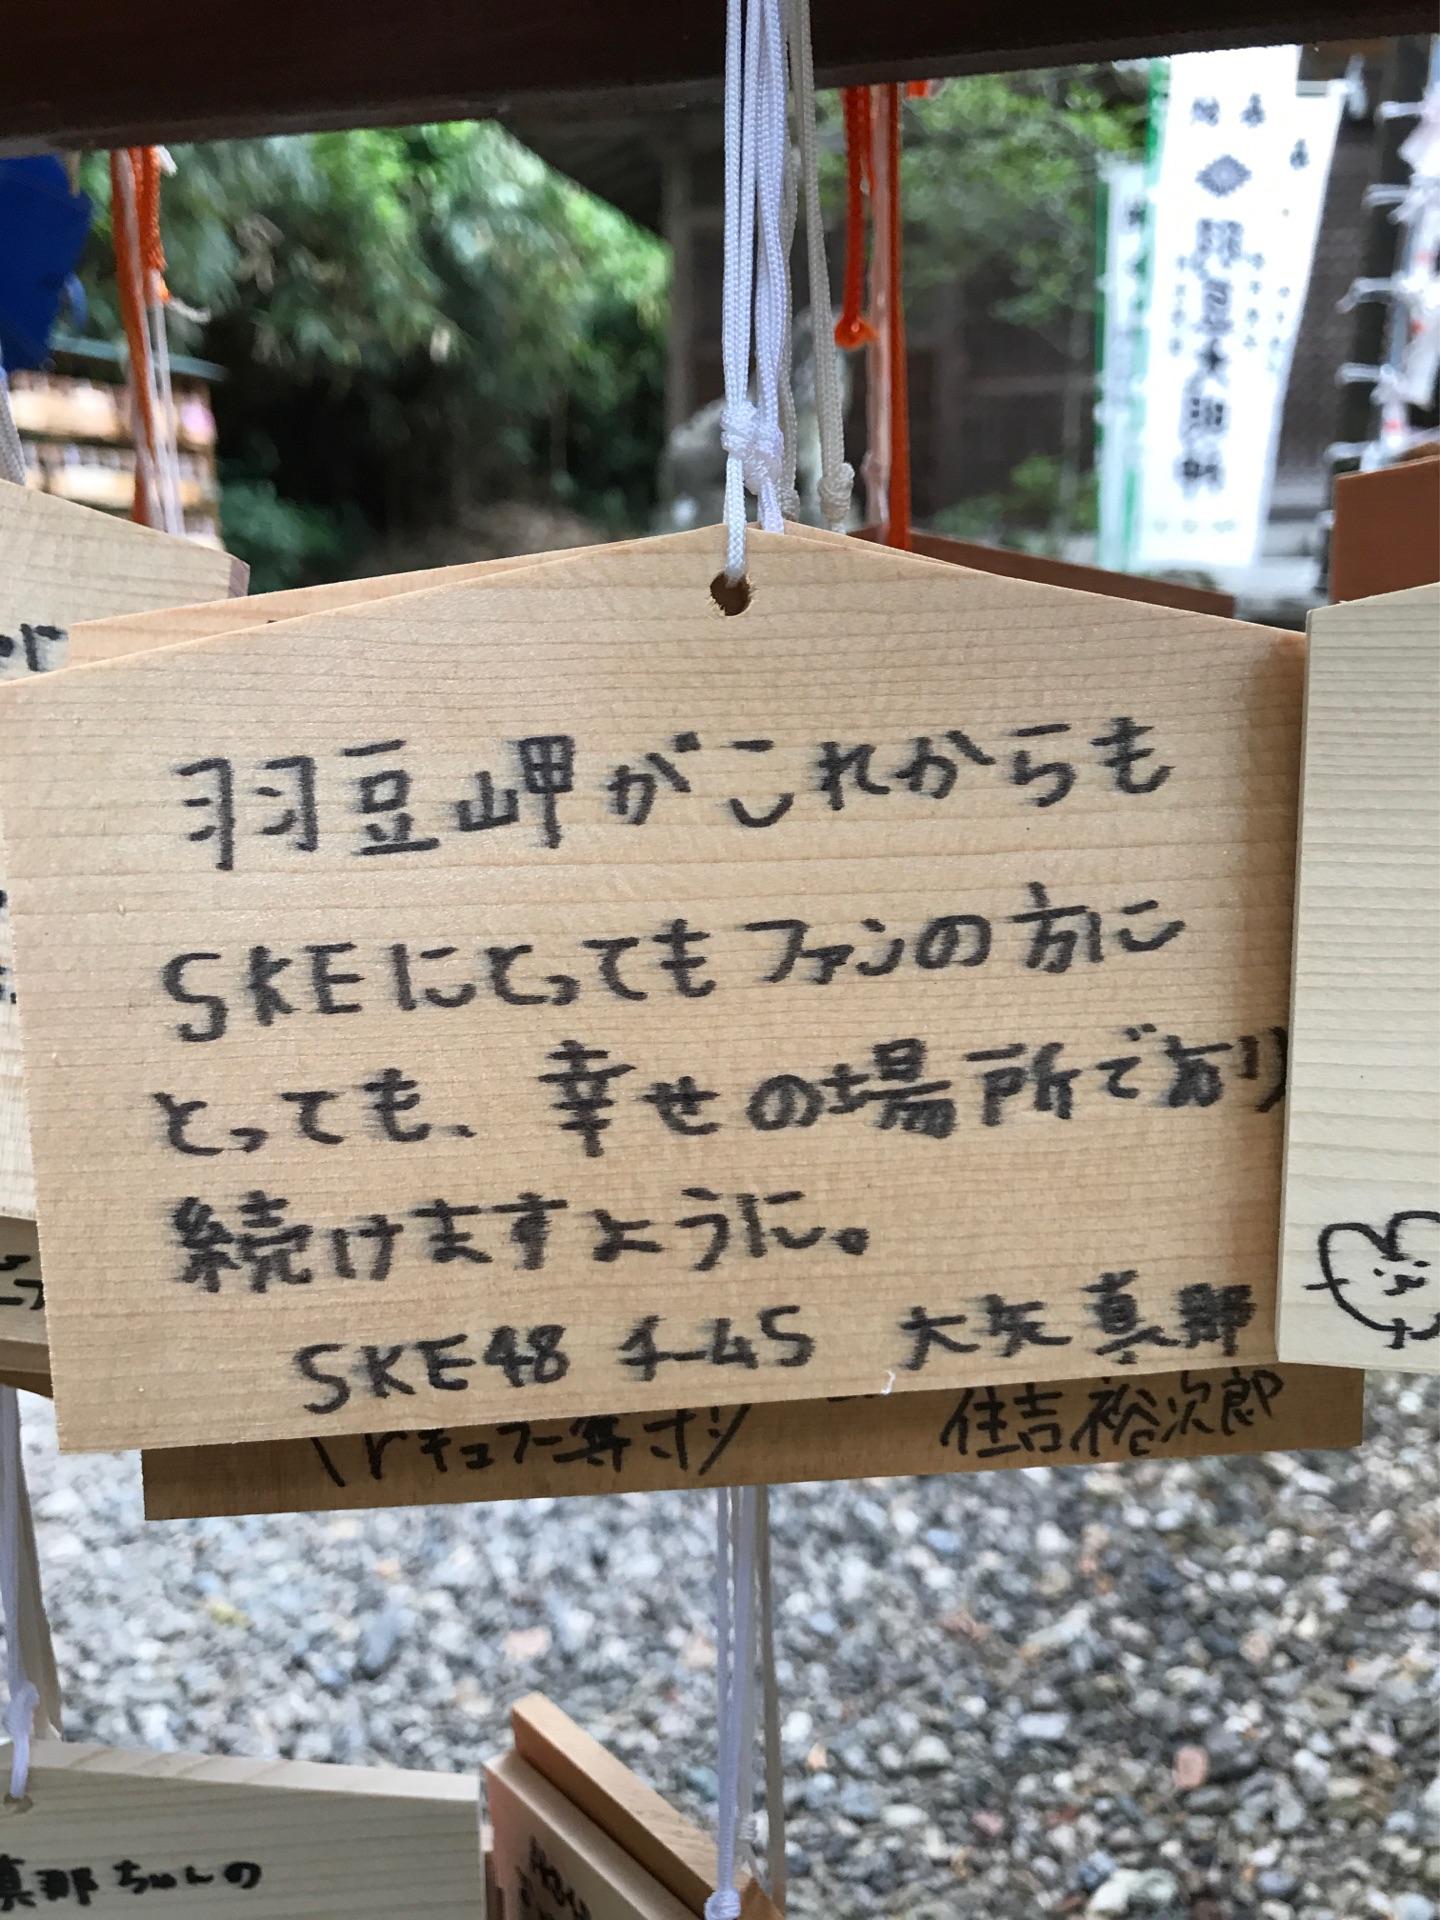 羽豆岬がこれからも
SKEにとってもファンの方に
とっても、幸せの場所であり
続けますように。
SKE48 チームS 大矢真那
住吉裕次郎
真那ちゃんの